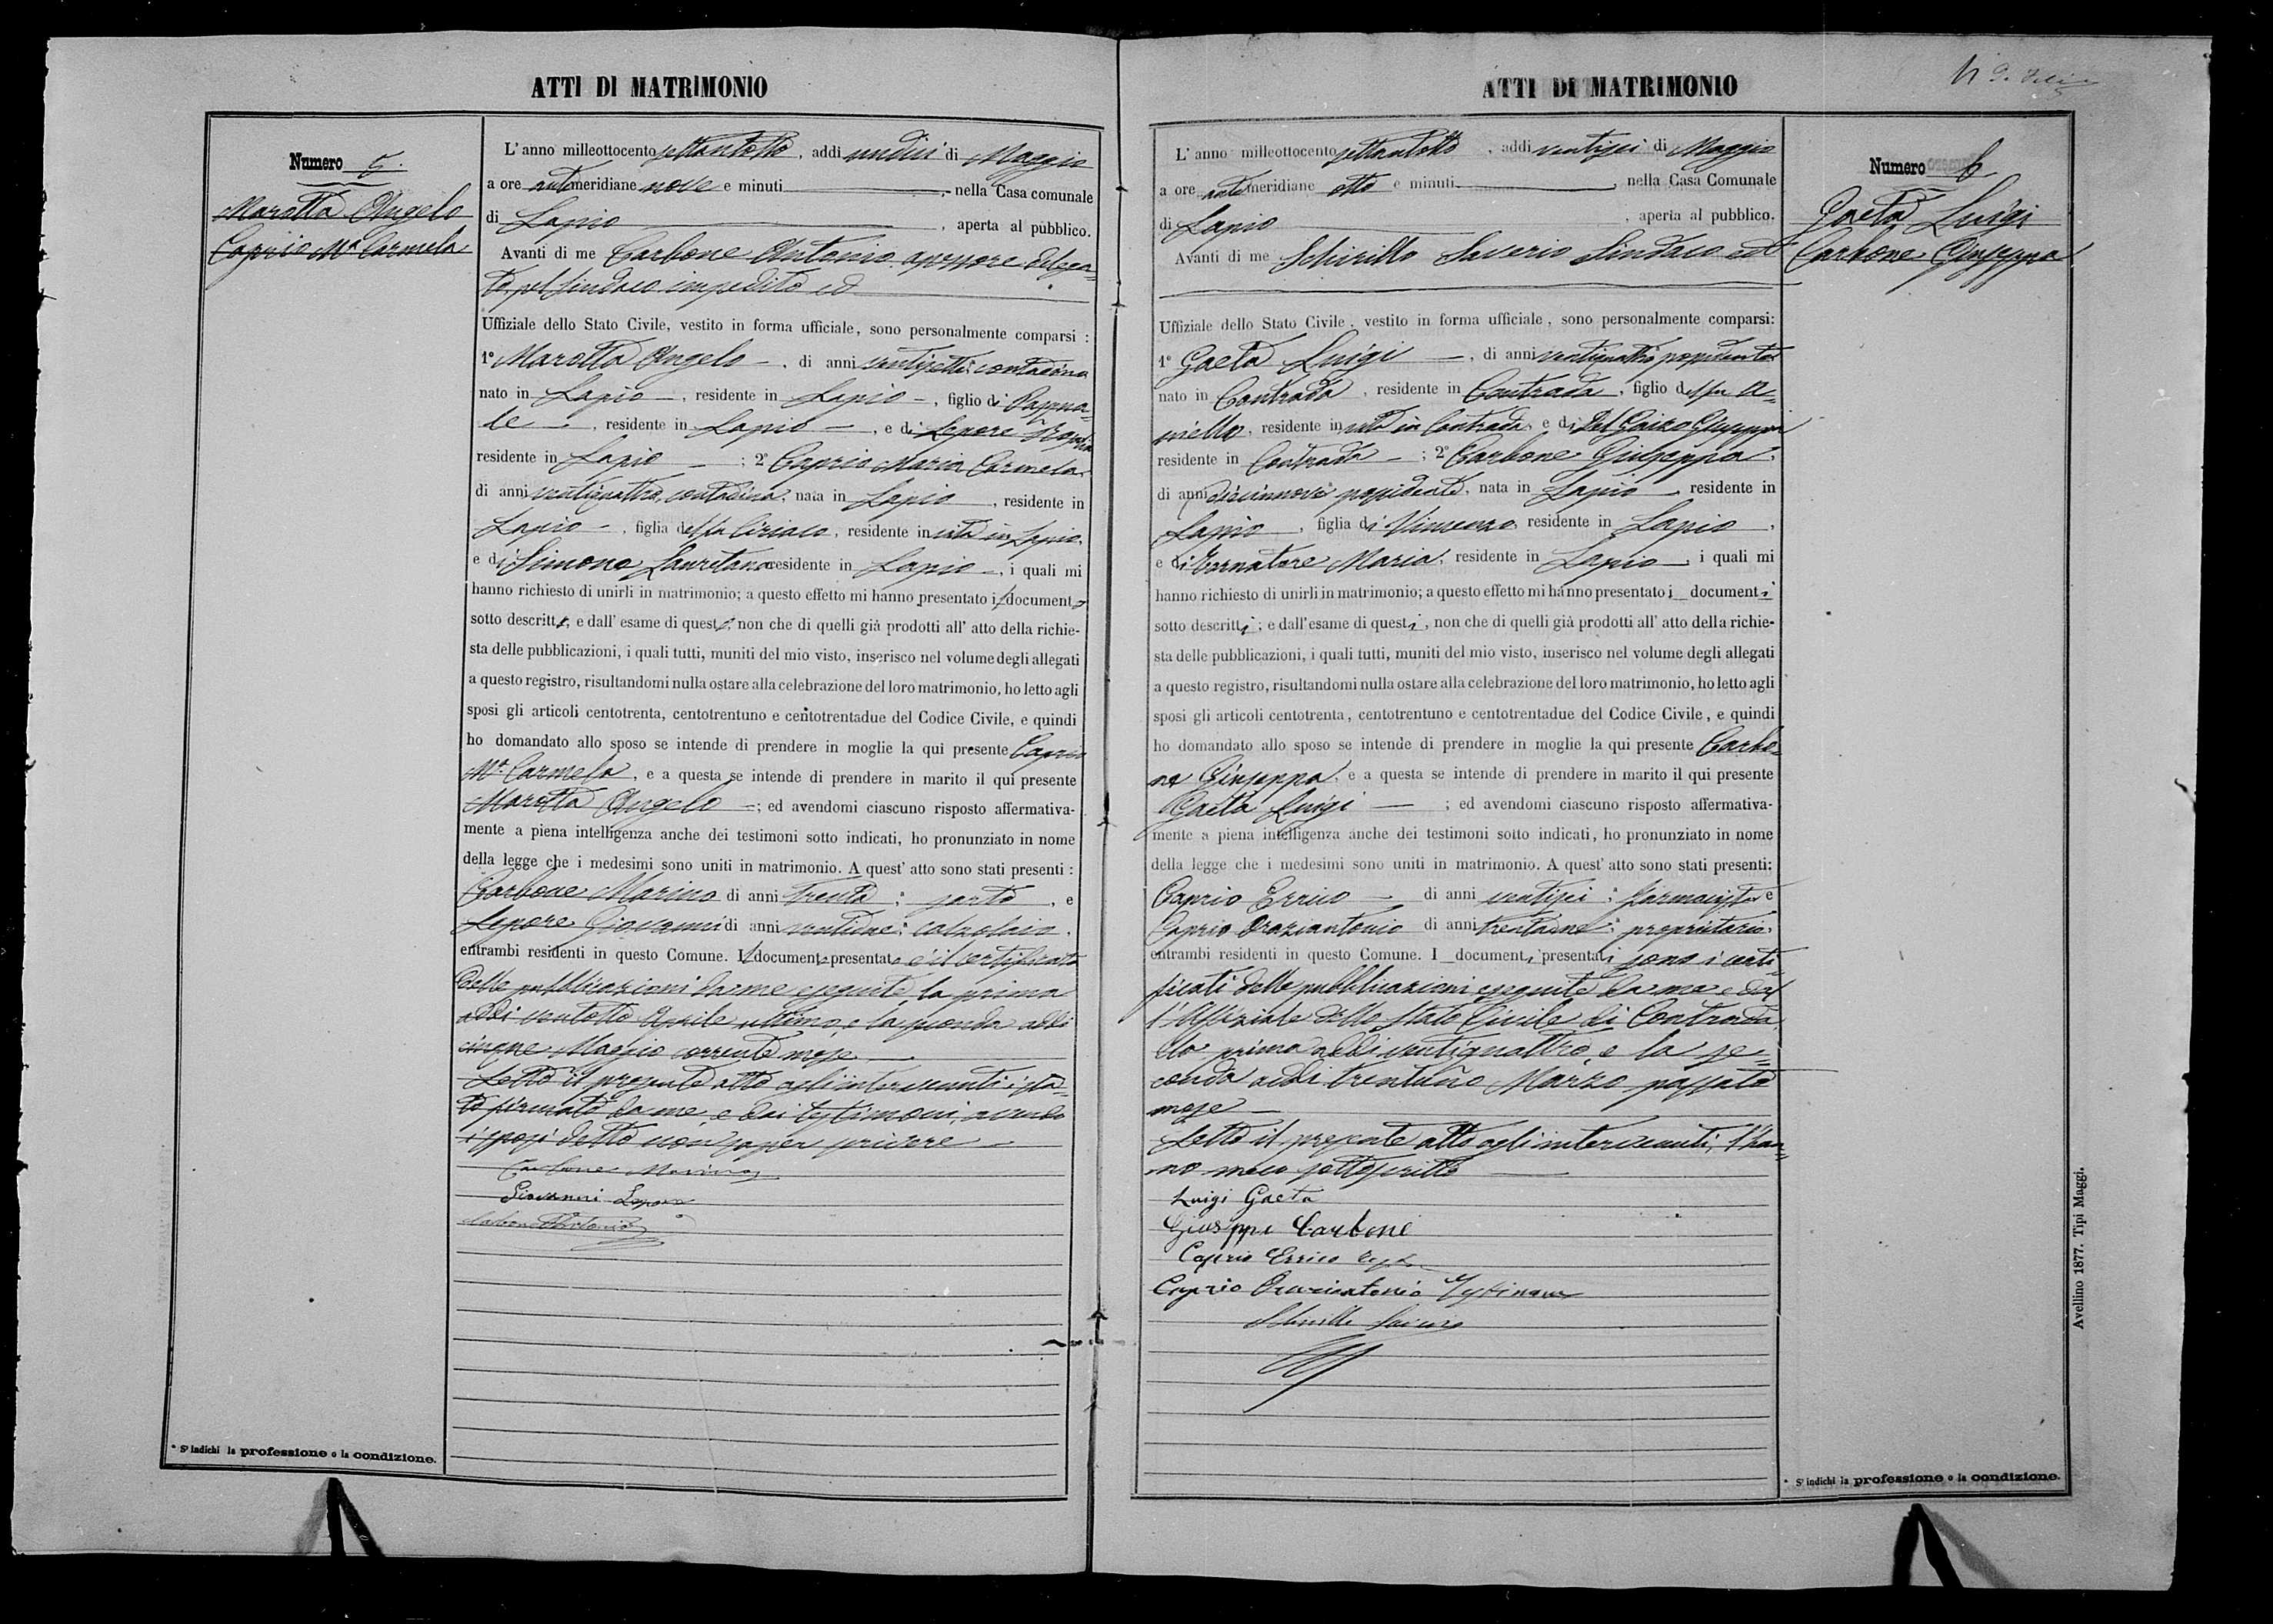 ATTI DI MATRIMONIO
Numero 5.
Marotta Angelo
Caprio Mª Carmela
L'anno milleottocento settantotto, addì undici di Maggio
a ore antemeridiane nove e minuti , nella Casa comunale
di Lapio , aperta al pubblico.
Avanti di me Carbone Antonio assessore delega-
to pel Sindaco impedito ed
Uffiziale dello Stato Civile, vestito in forma ufficiale, sono personalmente comparsi :
1º Marotta Angelo , di anni ventisette contadino
nato in Lapio , residente in Lapio , figlio di Pasqua-
le , residente in Lapio , e di Lepore
residente in Lapio ; 2º Caprio Maria Carmela,
di anni ventiquattro, contadina, nata in Lapio , residente in
Lapio , figlia del fu Ciriaco, residente in vita in Lapio,
e di Simone Lauretana residente in Lapio , i quali mi
hanno richiesto di unirli in matrimonio; a questo effetto mi hanno presentato il documento
sotto descritto; e dall' esame di questo, non che di quelli già prodotti all' atto della richie-
sta delle pubblicazioni, i quali tutti, muniti del mio visto, inserisco nel volume degli allegati
a questo registro, risultandomi nulla ostare alla celebrazione del loro matrimonio, ho letto agli
sposi gli articoli centotrenta, centotrentuno e centotrentadue del Codice Civile, e quindi
ho domandato allo sposo se intende di prendere in moglie la qui presente Caprio
Mª Carmela , e a questa se intende di prendere in marito il qui presente
Marotta Angelo ; ed avendomi ciascuno risposto affermativa-
mente a piena intelligenza anche dei testimoni sotto indicati, ho pronunziato in nome
della legge che i medesimi sono uniti in matrimonio. A quest' atto sono stati presenti :
Carbone Marino di anni trenta ; sarto , e
Lepore Giovanni di anni ventidue ; calzolaio ,
entrambi residenti in questo Comune. Il documento presentato è il certificato
delle pubblicazioni da me eseguite, la prima
addì ventotto Aprile ultimo, e la seconda addì
cinque Maggio corrente mese
Letto il presente atto agli intervenuti è sta-
to firmato da me, e dai testimoni, avendo
i sposi detto non saper scrivere
Carbone Marino
Giovanni Lepore
Carbone Antonio
* S'indichi la professione o la condizione.
ATTI DI MATRIMONIO
Numero 6
Gaeta Luigi
Carbone Giuseppa
L'anno milleottocento settantotto , addì ventisei di Maggio
a ore antemeridiane otto e minuti , nella Casa Comunale
di Lapio , aperta al pubblico.
Avanti di me Schirillo Saverio Sindaco ed
Uffiziale dello Stato Civile, vestito in forma ufficiale, sono personalmente comparsi:
1º Gaeta Luigi , di anni ventiquattro possidente
nato in Contrada , residente in Contrada , figlio del fu A-
niello, residente in vita in Contrada, e di Del Gaizo Giuseppa
residente in Contrada ; 2º Carbone Giuseppa,
di anni diciannove possidente, nata in Lapio , residente in
Lapio , figlia di Vincenzo, residente in Lapio ,
e di Tornatore Maria, residente in Lapio , i quali mi
hanno richiesto di unirli in matrimonio; a questo effetto mi hanno presentato i documenti
sotto descritti ; e dall'esame di questi , non che di quelli già prodotti all' atto della richie-
sta delle pubblicazioni, i quali tutti, muniti del mio visto, inserisco nel volume degli allegati
a questo registro, risultandomi nulla ostare alla celebrazione del loro matrimonio, ho letto agli
sposi gli articoli centotrenta, centotrentuno e centotrentadue del Codice Civile, e quindi
ho domandato allo sposo se intende di prendere in moglie la qui presente Carbo-
ne Giuseppa, e a questa se intende di prendere in marito il qui presente
Gaeta Luigi ; ed avendomi ciascuno risposto affermativa-
mente a piena intelligenza anche dei testimoni sotto indicati, ho pronunziato in nome
della legge che i medesimi sono uniti in matrimonio. A quest' atto sono stati presenti:
Caprio Errico di anni ventisei ; farmacista e
Caprio Oraziantonio di anni trentadue ; proprietario,
entrambi residenti in questo Comune. I documenti presentati sono i certi-
ficati delle pubblicazioni eseguite da me e dal
l'Uffiziale dello Stato Civile di Contrada
la prima addì ventiquattro, e la se-
conda addì trentuno Marzo passato
mese
Letto il presente atto agli intervenuti, l'han-
no meco sottoscritto
Luigi Gaeta
Giuseppa Carbone
Caprio Errico
Caprio Oraziantonio Testimone
Schirillo Saverio
* S'indichi la professione o la condizione.
Avellino 1877. Tipi Maggi.